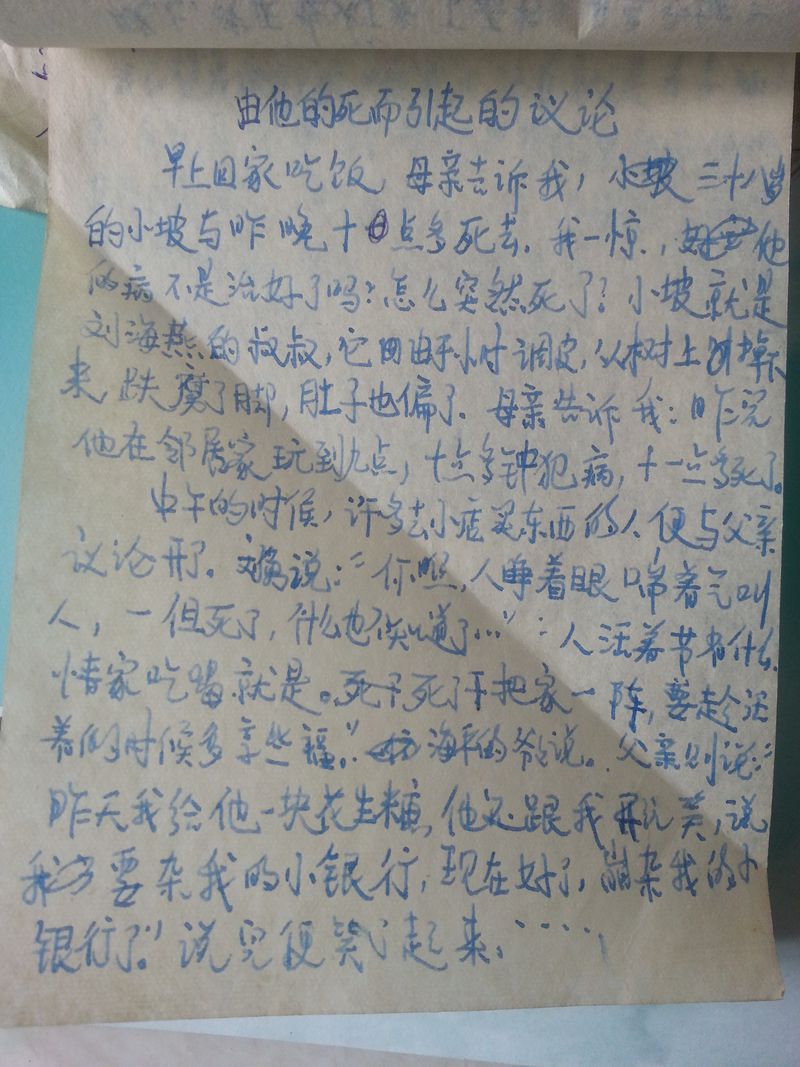 由他的死而引起的议论
早上回家吃饭 母亲告诉我，小坡 三十八岁
的小坡与昨晚十点多死去. 我一惊, 他
的病不是治好了吗? 怎么突然死了? 小坡就是
刘海燕的叔叔, 它由于小时调皮, 从树上掉下
来, 跌 了脚, 肚子也偏了. 母亲告诉我: 昨晚
他在邻居家玩到九点, 十点多钟犯病, 十一点多死了。
中午的时候, 许多去小店买东西的人便与父亲
议论开了. 说:“你照, 人睁着眼喘着气叫
人, 一但死了, 什么也不知道了...”“人活着节省什么
家吃喝就是。死了死了 把家一阵, 要趁活
着的时候多享些福。”海平的爷爷说。父亲则说:“
昨天我给他一块花生糖, 他还跟我开玩笑, 说
我 要杂我的小银行, 现在好了, 杂我的小
银行了。”说完便笑了起来. ····,